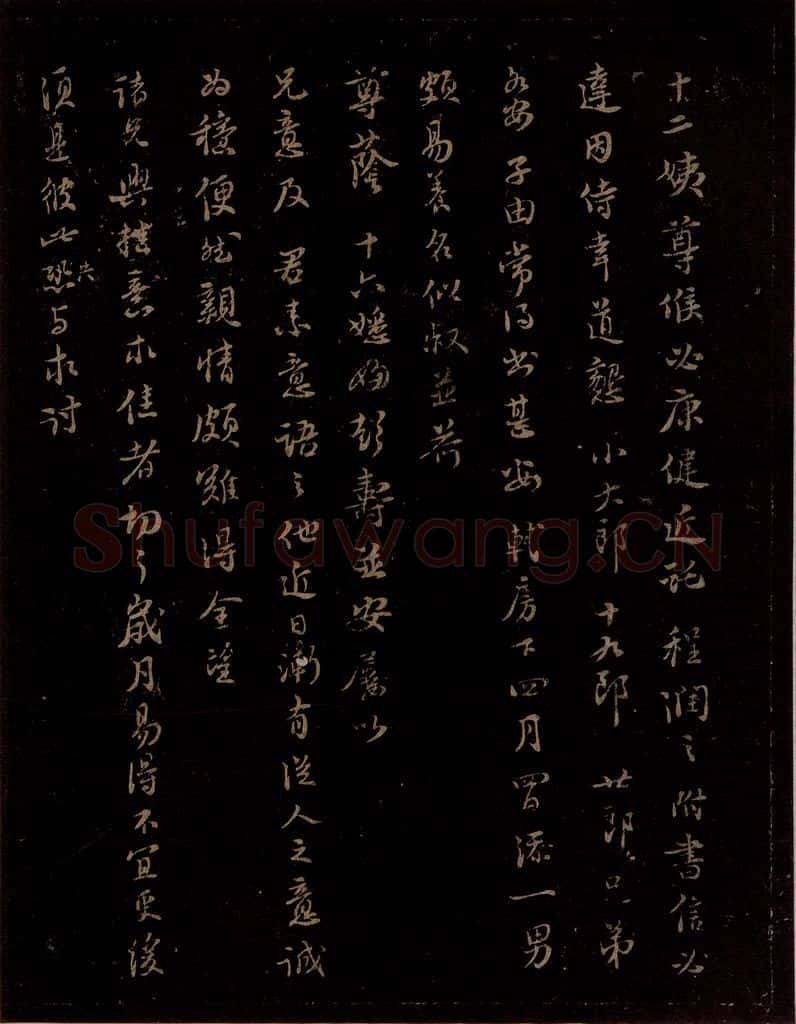 十二姨尊候必康健近託程潤之附書信必
達因侍幸道懇小大郎十九郎廿郎兄弟
各安子由常得書甚安軾房下四月四日添一男
頗易養名似叔並荷
尊蔭十六婦彭壽並安屢以
兄意及君素意語之他近日漸有從人之意誠
為穩便然親情頗難得全望
諸兄與掛意求佳者切々歲月易得不宜更後
須是彼此共与求討
Shufawang.CN